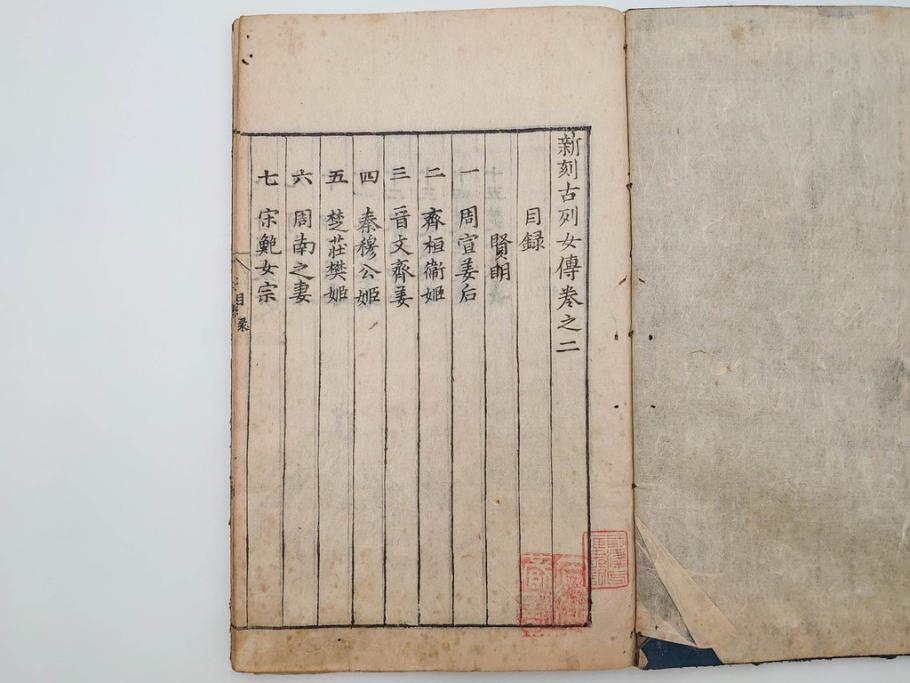 新刻古列女傳卷之二
目録
賢明
一 周宣姜后
二 齊桓衞姬
三 晉文齊姜
四 秦穆公姬
五 楚莊樊姬
六 周南之妻
七 宋鮑女宗
目录